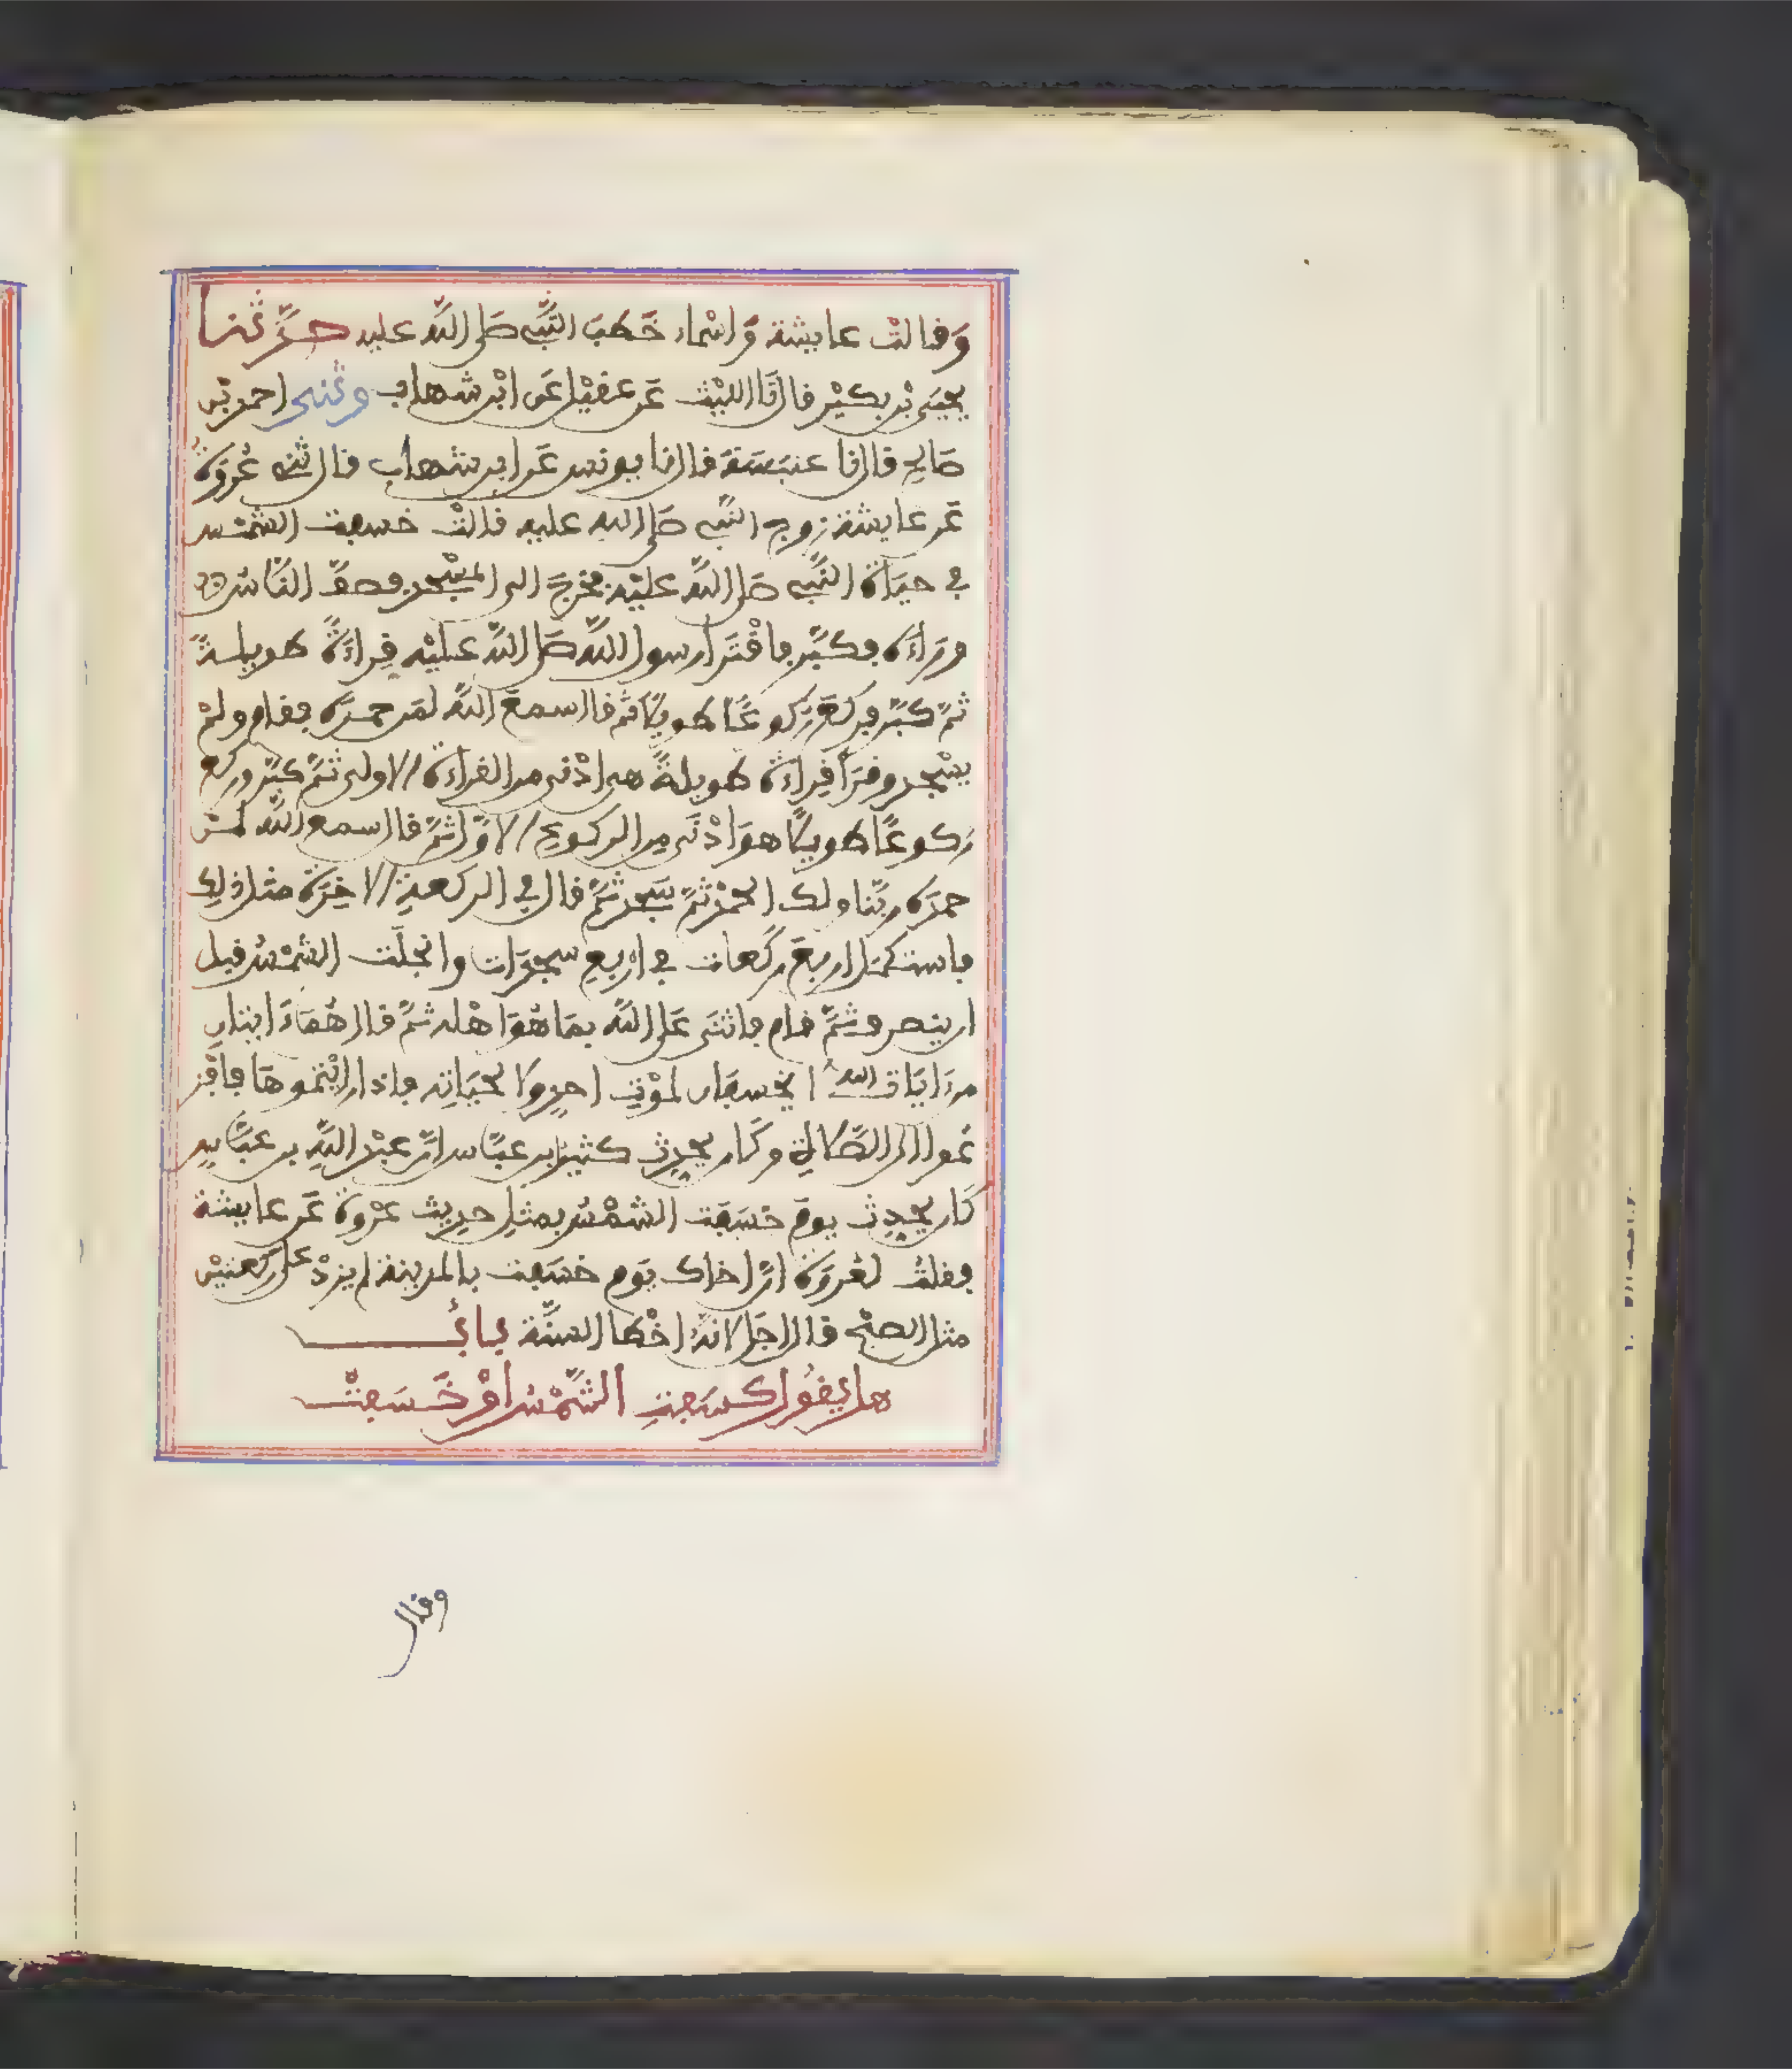 وَقالتْ عايشة وَاسْماء خَطَبَ النَّبِي صَلى اللَّه عليه حدَّثنا
يحيَى بْن بكيْر قال نَا الليْث عَن عقيْل عَن ابْن شهاب وثنى احمد بْن
صَالح قال نا عنبَسَة قال نا يونس عَن ابن شهاب قال ثنى عُروَةُ
عَن عايشة زوج النَّبي صَلى الله عليه قالتْ خسفت الشمْس
في حيَاة النَّبي صَلى اللَّه عليْه فخرجَ الى المسْجد فصفَّ النَّاسُ
ورَاءَه فكبَّر فاقْتَرا رسول اللَّه صَلى اللَّه عليْه قِراءَةً طويلةً
ثمَّ كبَّر فركعَ رُكوعًا طويلًا ثم قال سمعَ اللَّه لمَن حمدَه فقام ولمْ
يسْجد وقرَأ قِراءةً طويلةً هى ادْنى من القراءة الاولى ثمَّ كبَّر وركع
رُكوعًا طويلًا هوَ ادْنَى مِن الركوعِ الاوَّل ثمَّ قال سمع اللَّه لمَن
حمدَه ربَّنا ولك الحمْد ثمَّ سَجد ثمَّ قال في الركعةِ الاخِرَة مثل ذلِك
فاستكمَل اربعَ ركَعات في ارْبعِ سجَدَات وانجلَت الشمْسُ قبل
ان ينصرف ثمَّ قام فاثنَى عَلى اللَّه بمَا هُوَ اهْله ثمَّ قال هُمَا ءَايتان
من ءَايَات الله لا يخسفان لموْتِ احدٍ ولا لحيَاتِه فاذا رايْتموهَا فافْز
عُوا الى الصَّلاةِ وكَان يحدِث كثيرُ بن عبَّاس انَّ عبْد اللَّهِ بن عبَّاسٍ
كَان يحدِث يومَ خسَفَت الشمْسُ بمثلِ حدِيث عرْوةَ عَن عايشة
فقلتُ لعُروَة انَّ اخاك يوَم خسَفت بالمدينة لم يزدْ على ركعتيْن
مثل الصبْح قال اجَل لانهُ اخْطا السنَّة بابُ
هل يقُول كسَفتِ الشَّمْسُ اوْ خَسَفتْ
وقال